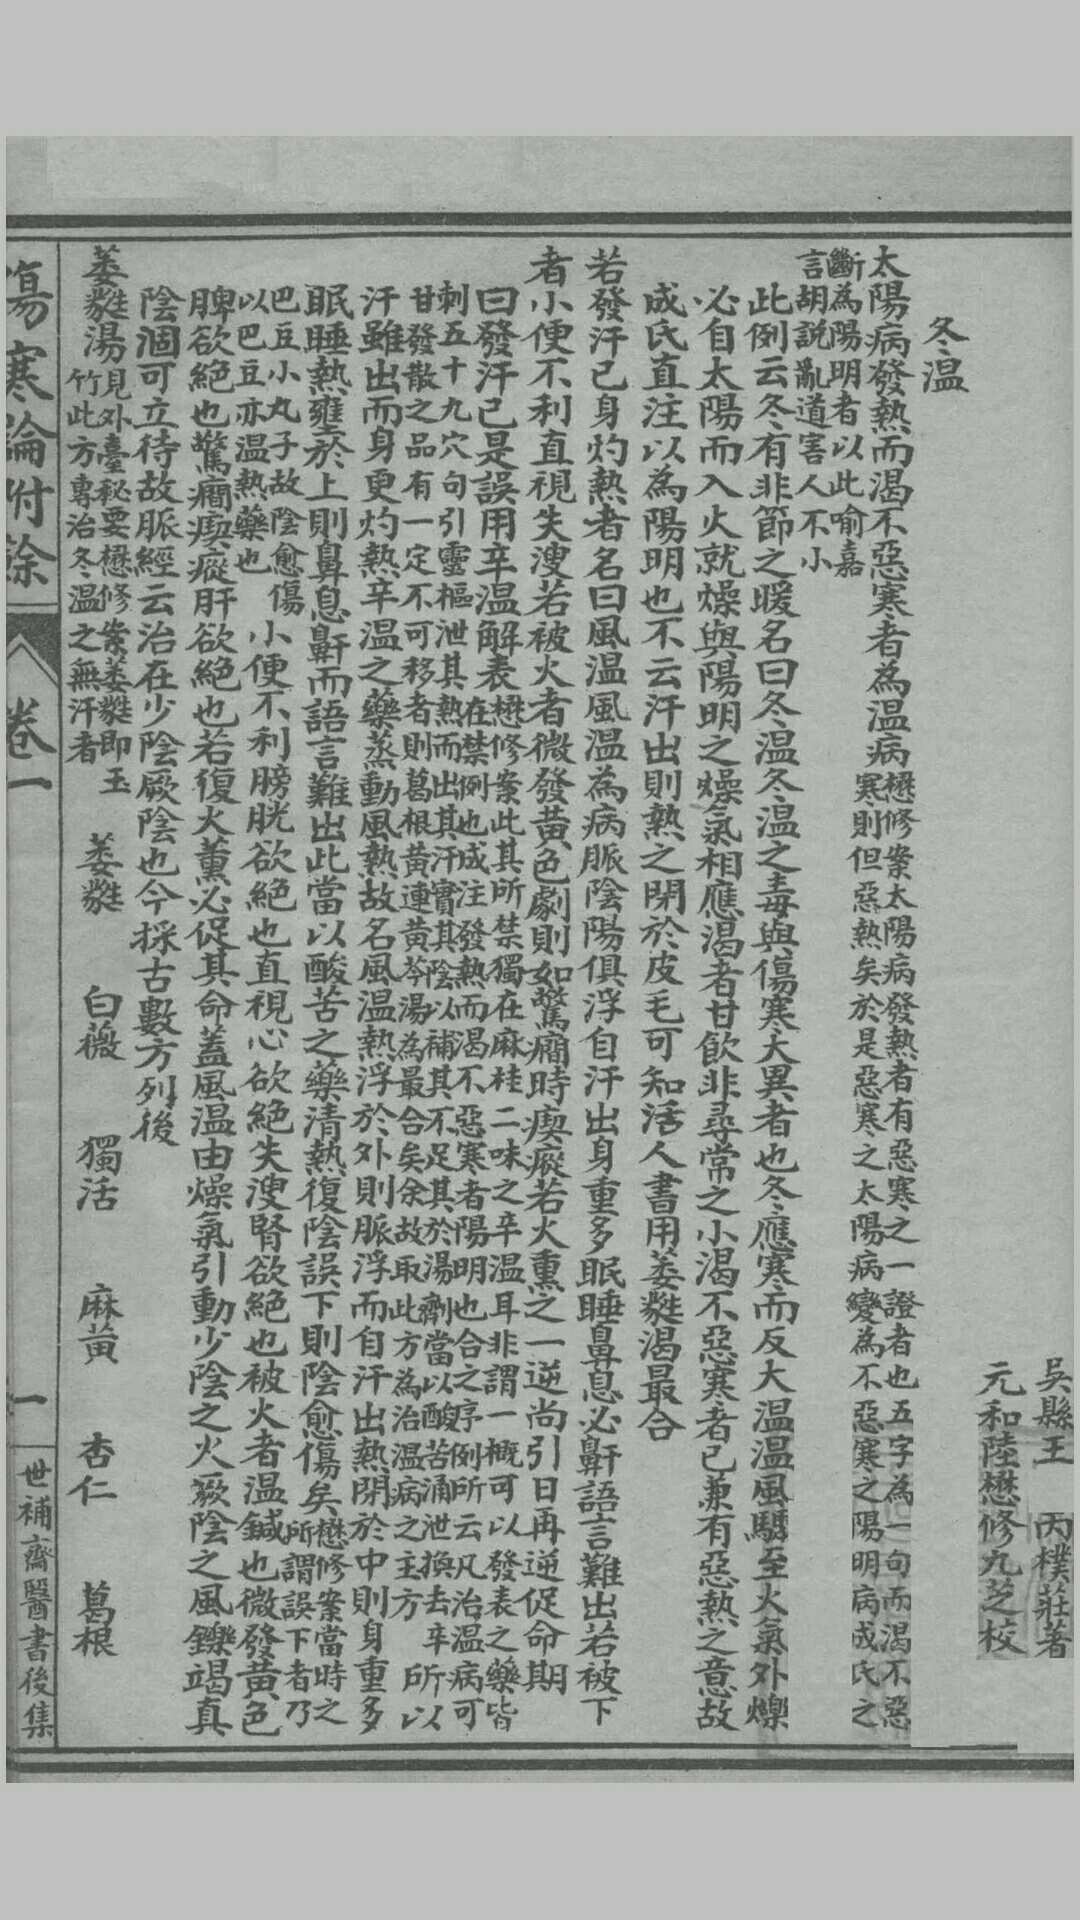 吳縣王　丙樸莊著
元和陸懋修九芝校
冬温
太陽病發熱而渴不惡寒者為温病
懋修案太陽病發熱者有惡寒之一證者也五字為一句而渴不惡
寒則但惡熱矣於是惡寒之太陽病變為不惡寒之陽明病成氏之
斷為陽明者以此喻嘉
言胡說亂道害人不小
此例云冬有非節之暖名曰冬温冬温之毒與傷寒大異者也冬應寒而反大温温風驟至火氣外爍
必自太陽而入火就燥與陽明之燥氣相應渴者甘飲非尋常之小渴不惡寒者已兼有惡熱之意故
成氏直注以為陽明也不云汗出則熱之閉於皮毛可知活人書用萎蕤湯最合
若發汗已身灼熱者名曰風温風温為病脈陰陽俱浮自汗出身重多眠睡鼻息必鼾語言難出若被下
者小便不利直視失溲若被火者微發黃色劇則如驚癇時瘈瘲若火熏之一逆尚引日再逆促命期
曰發汗已是誤用辛温解表
懋修案此其所禁獨在麻桂二味之辛温耳非謂一概可以發表之藥皆
在禁例也成注發熱而渴不惡寒者陽明也合之序例所云凡治温病可
刺五十九穴句引靈樞泄其熱而出其汗實其陰以補其不足其於湯劑當以酸苦涌泄換去辛
甘發散之品有一定不可移者則葛根黃連黃芩湯為最合矣余故取此方為治温病之主方
所以
汗雖出而身更灼熱辛温之藥蒸動風熱故名風温熱浮於外則脈浮而自汗出熱閉於中則身重多
眠睡熱壅於上則鼻息鼾而語言難出此當以酸苦之藥清熱復陰誤下則陰愈傷矣
懋修案當時之
所謂誤下者乃
巴豆小丸子故陰愈傷
以巴豆亦温熱藥也
小便不利膀胱欲絕也直視心欲絕失溲腎欲絕也被火者温鍼也微發黃色
脾欲絕也驚癇瘈瘲肝欲絕也若復火薰必促其命蓋風温由燥氣引動少陰之火厥陰之風鑠竭真
陰涸可立待故脈經云治在少陰厥陰也今採古數方列後
萎蕤湯
見外臺秘要懋修案萎蕤即玉
竹此方專治冬温之無汗者
萎蕤　白薇　獨活　麻黃　杏仁　葛根
傷寒論附餘　卷一　一　世補齋醫書後集